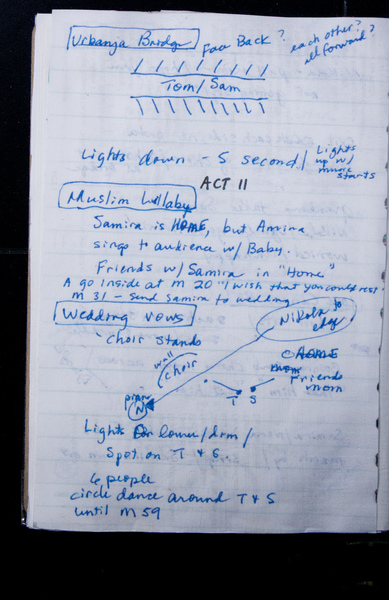 Vrbanja Bridge
Foo Back?
each other?
all forward?
Tom/Sam
Lights down - 5 second/
Lights
up w/
music
starts
ACT II
Muslim Lullaby
Samira is HOME, but Amira
sings to audience w/ Baby.
Friends w/ Samira in "Home"
A go inside at m 20 "I wish that you could rest"
M 31 - send Samira to wedding
Wedding vows
Nikola to
edge
choir stands
wall
choir
HOME
mom
Friends
mom
piano
N
T S
Lights lower/dim/
Spot on T & S
6 people
circle dance around T & S
until M 59